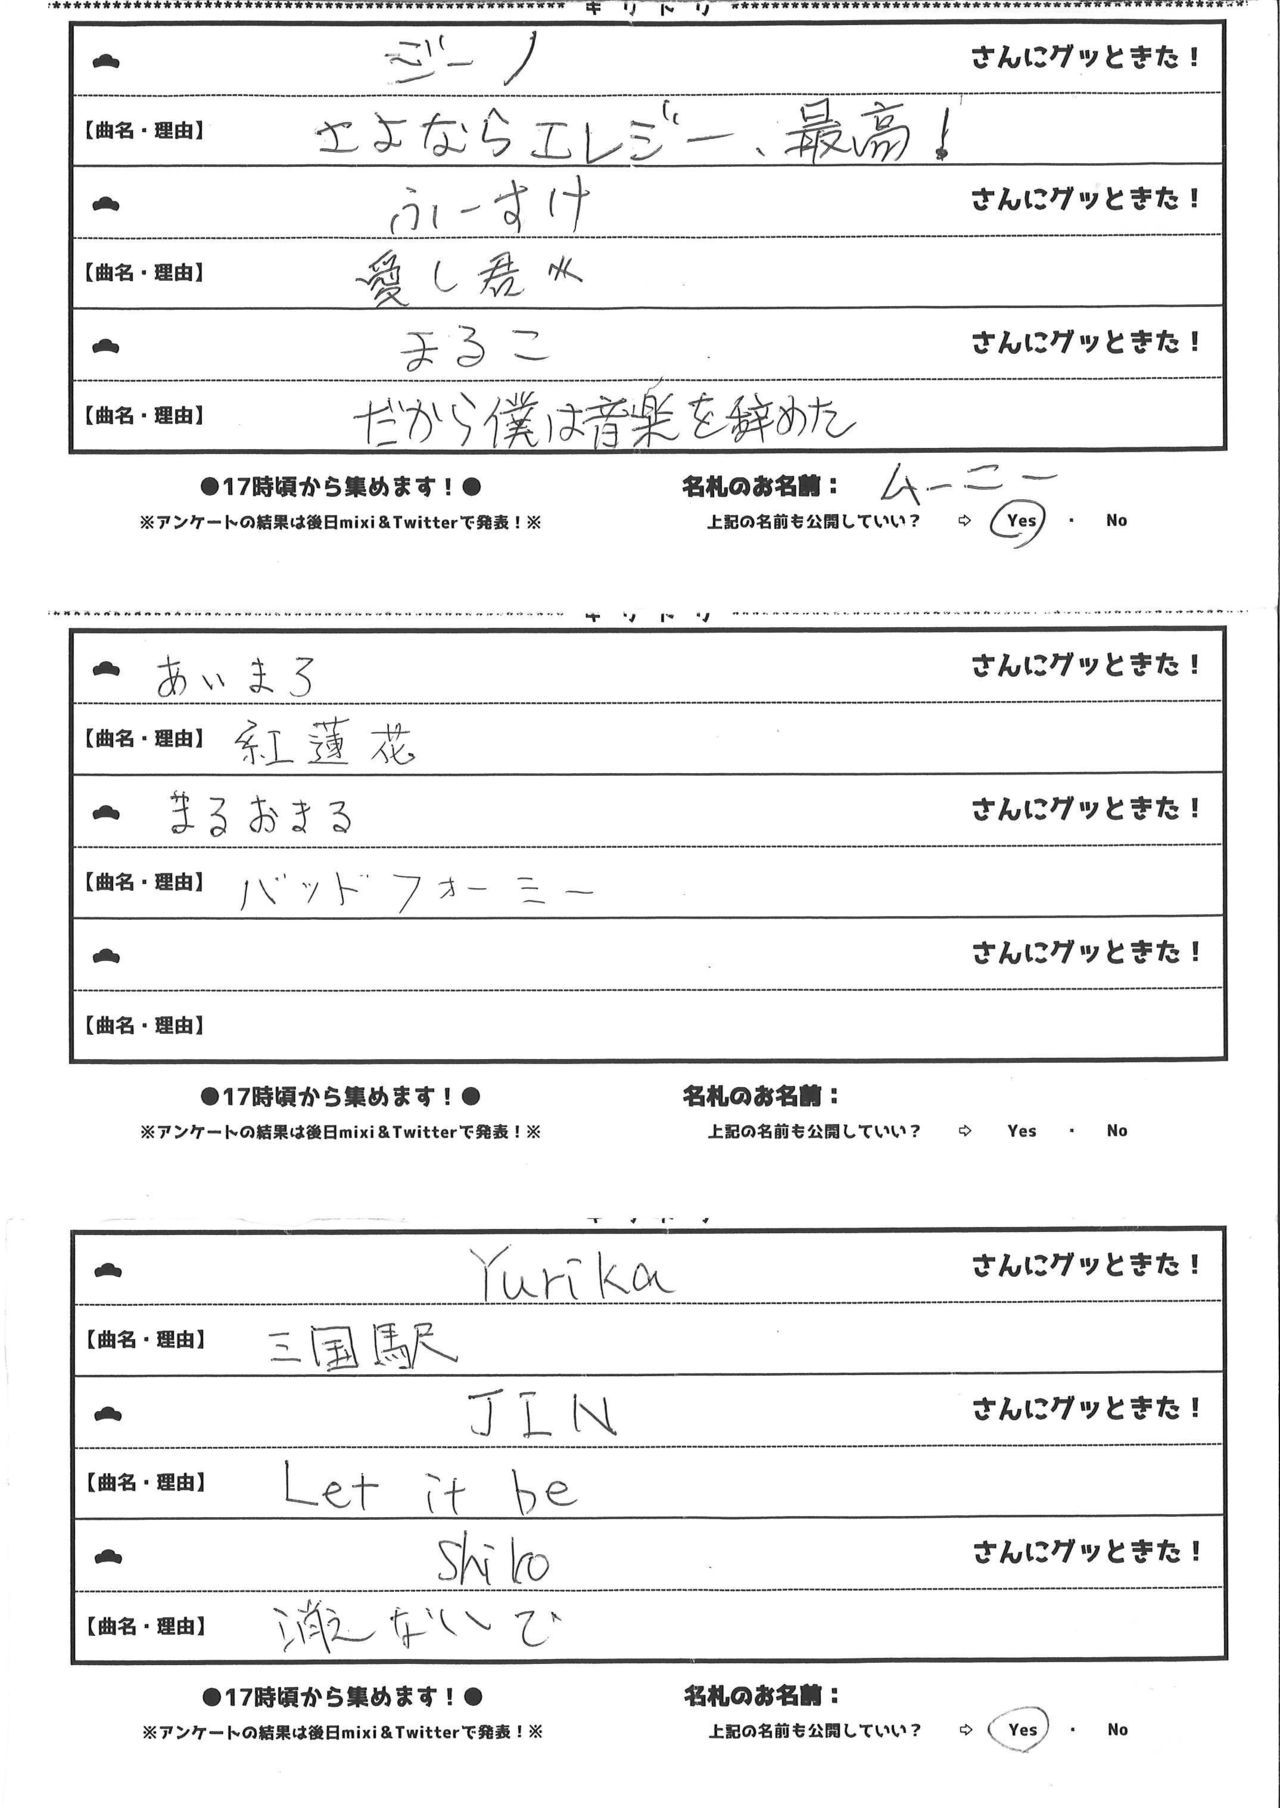 キリトリ
ジーノ さんにグッときた!
【曲名・理由】 さよならエレジー、最高!
ふーすけ さんにグッときた!
【曲名・理由】 愛し君
まるこ さんにグッときた!
【曲名・理由】 だから僕は音楽を辞めた
●17時頃から集めます!● 名札のお名前: ムーニー
※アンケートの結果は後日mixi&Twitterで発表!※ 上記の名前も公開していい? ⇨ Yes ・ No
キリトリ
あいまろ さんにグッときた!
【曲名・理由】 紅蓮花
まるおまる さんにグッときた!
【曲名・理由】 バッドフォーミー
さんにグッときた!
【曲名・理由】
●17時頃から集めます!● 名札のお名前:
※アンケートの結果は後日mixi&Twitterで発表!※ 上記の名前も公開していい? ⇨ Yes ・ No
キリトリ
Yurika さんにグッときた!
【曲名・理由】 三国駅
JIN さんにグッときた!
【曲名・理由】 Let it be
Shiko さんにグッときた!
【曲名・理由】 消えないで
●17時頃から集めます!● 名札のお名前:
※アンケートの結果は後日mixi&Twitterで発表!※ 上記の名前も公開していい? ⇨ Yes ・ No